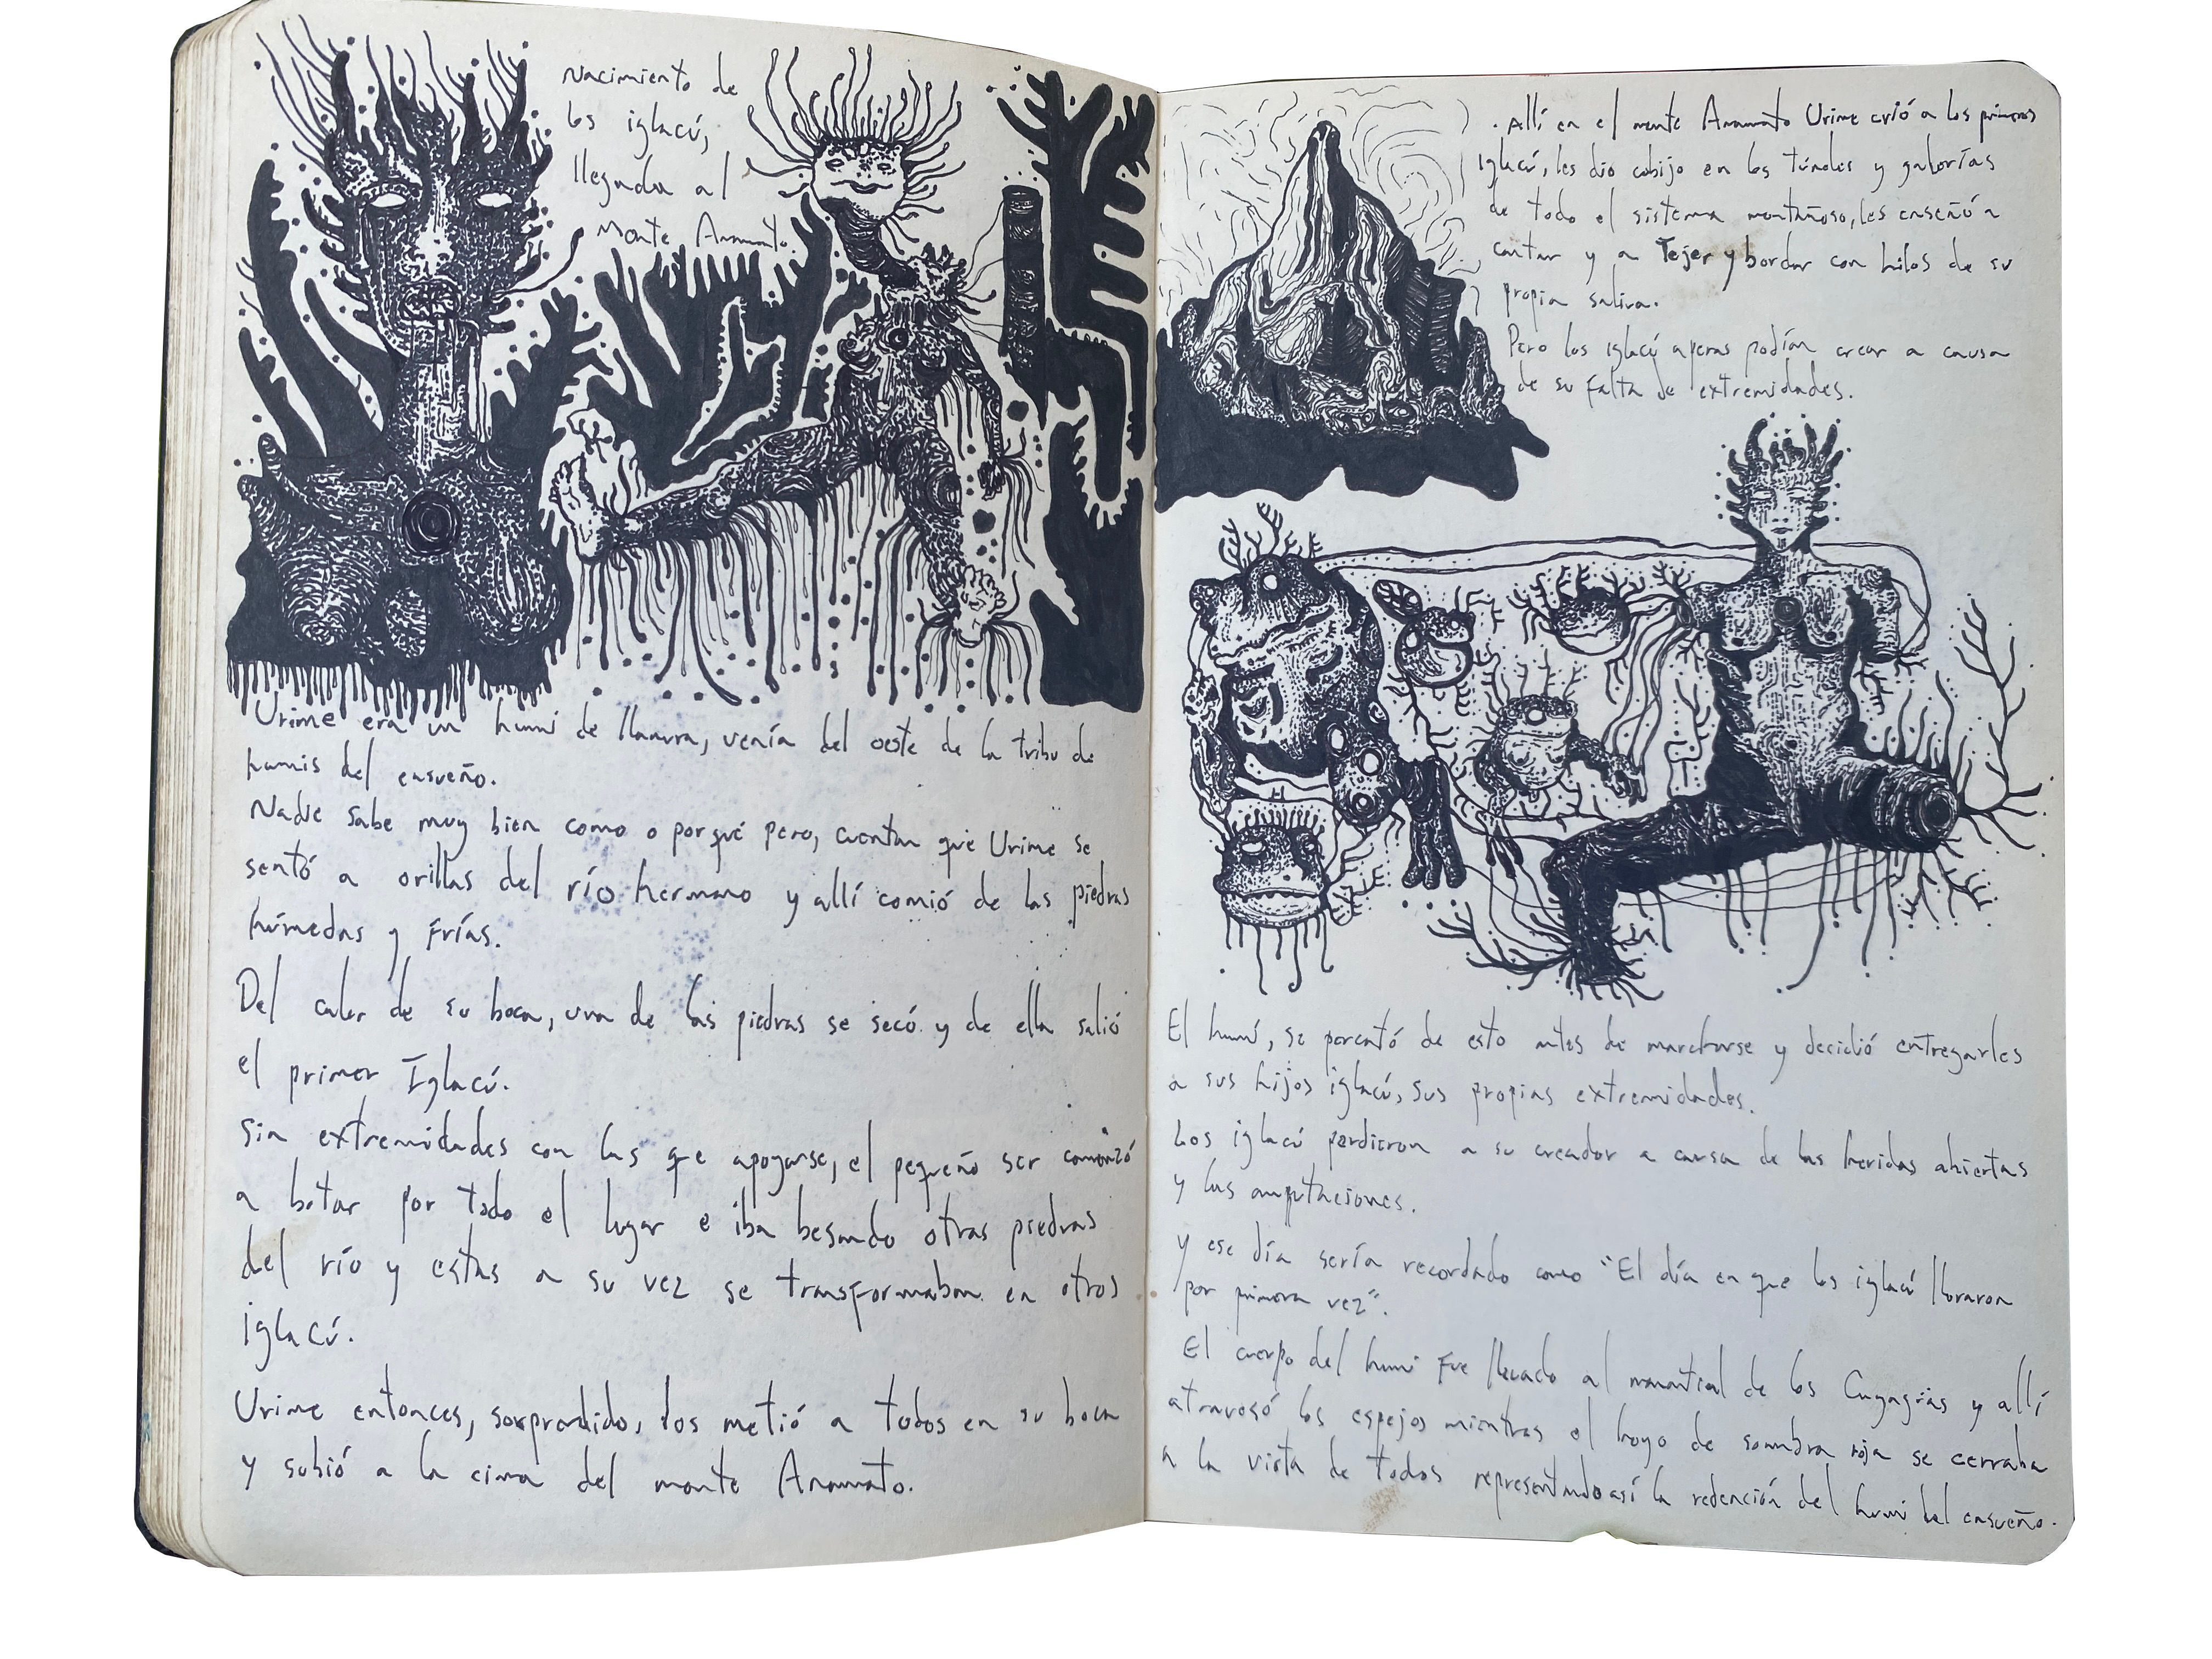 Nacimiento de
los iglacú,
llegada al
Monte Anamato.
Urime era un humi de llanura, venía del oeste de la tribu de
humis del ensueño.
Nadie sabe muy bien como o porqué pero, cuentan que Urime se
sentó a orillas del río hermano y allí comió de las piedras
húmedas y frías.
Del calor de su boca, una de las piedras se secó y de ella salió
el primer Iglacú.
Sin extremidades con las que apoyarse, el pequeño ser comenzó
a botar por todo el lugar e iba besando otras piedras
del río y estas a su vez se transformaban en otros
iglacú.
Urime entonces, sorprendido, los metió a todos en su boca
y subió a la cima del monte Anamato.
. Allí en el monte Anamato Urime crió a los primeros
iglacú, les dio cobijo en los túneles y galerías
de todo el sistema montañoso, les enseñó a
cantar y a Tejer y bordar con hilos de su
propia saliva.
Pero los iglacú apenas podían crear a causa
de su falta de extremidades.
El humi, se percató de esto antes de marcharse y decidió entregarles
a sus hijos iglacú, sus propias extremidades.
Los iglacú perdieron a su creador a causa de las heridas abiertas
y las amputaciones.
y ese día sería recordado como "El día en que los iglacú lloraron
por primera vez".
El cuerpo del humi fue llevado al manantial de los y allí
atravesó los espejos mientras el hoyo de sombra roja se cerraba
a la vista de todos representando así la redención del humi del ensueño.